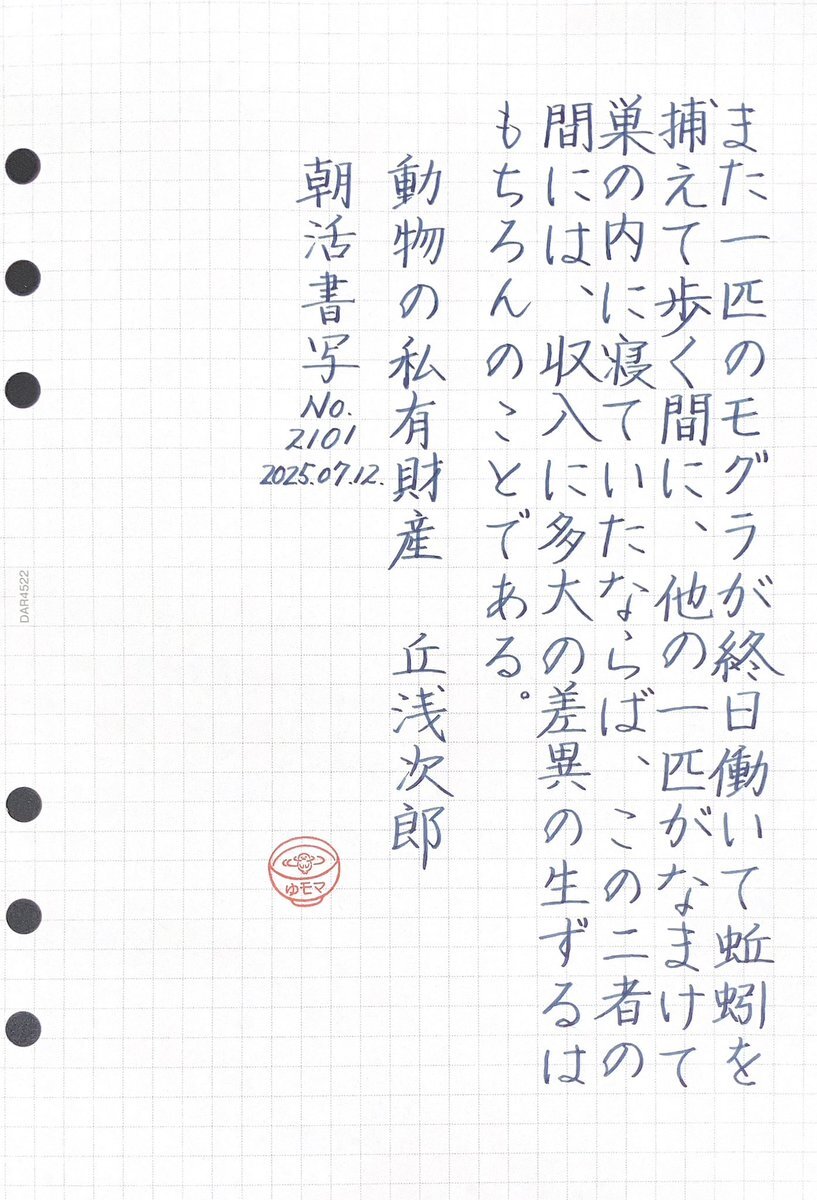 また一匹のモグラが終日働いて蚯蚓を
捕えて歩く間に、他の一匹がなまけて
巣の内に寝ていたならば、この二者の
間には、収入に多大の差異の生ずるは
もちろんのことである。
動物の私有財産　丘浅次郎
朝活書写
No.
2101
2025.07.12.
ゆモマ
DAR4522